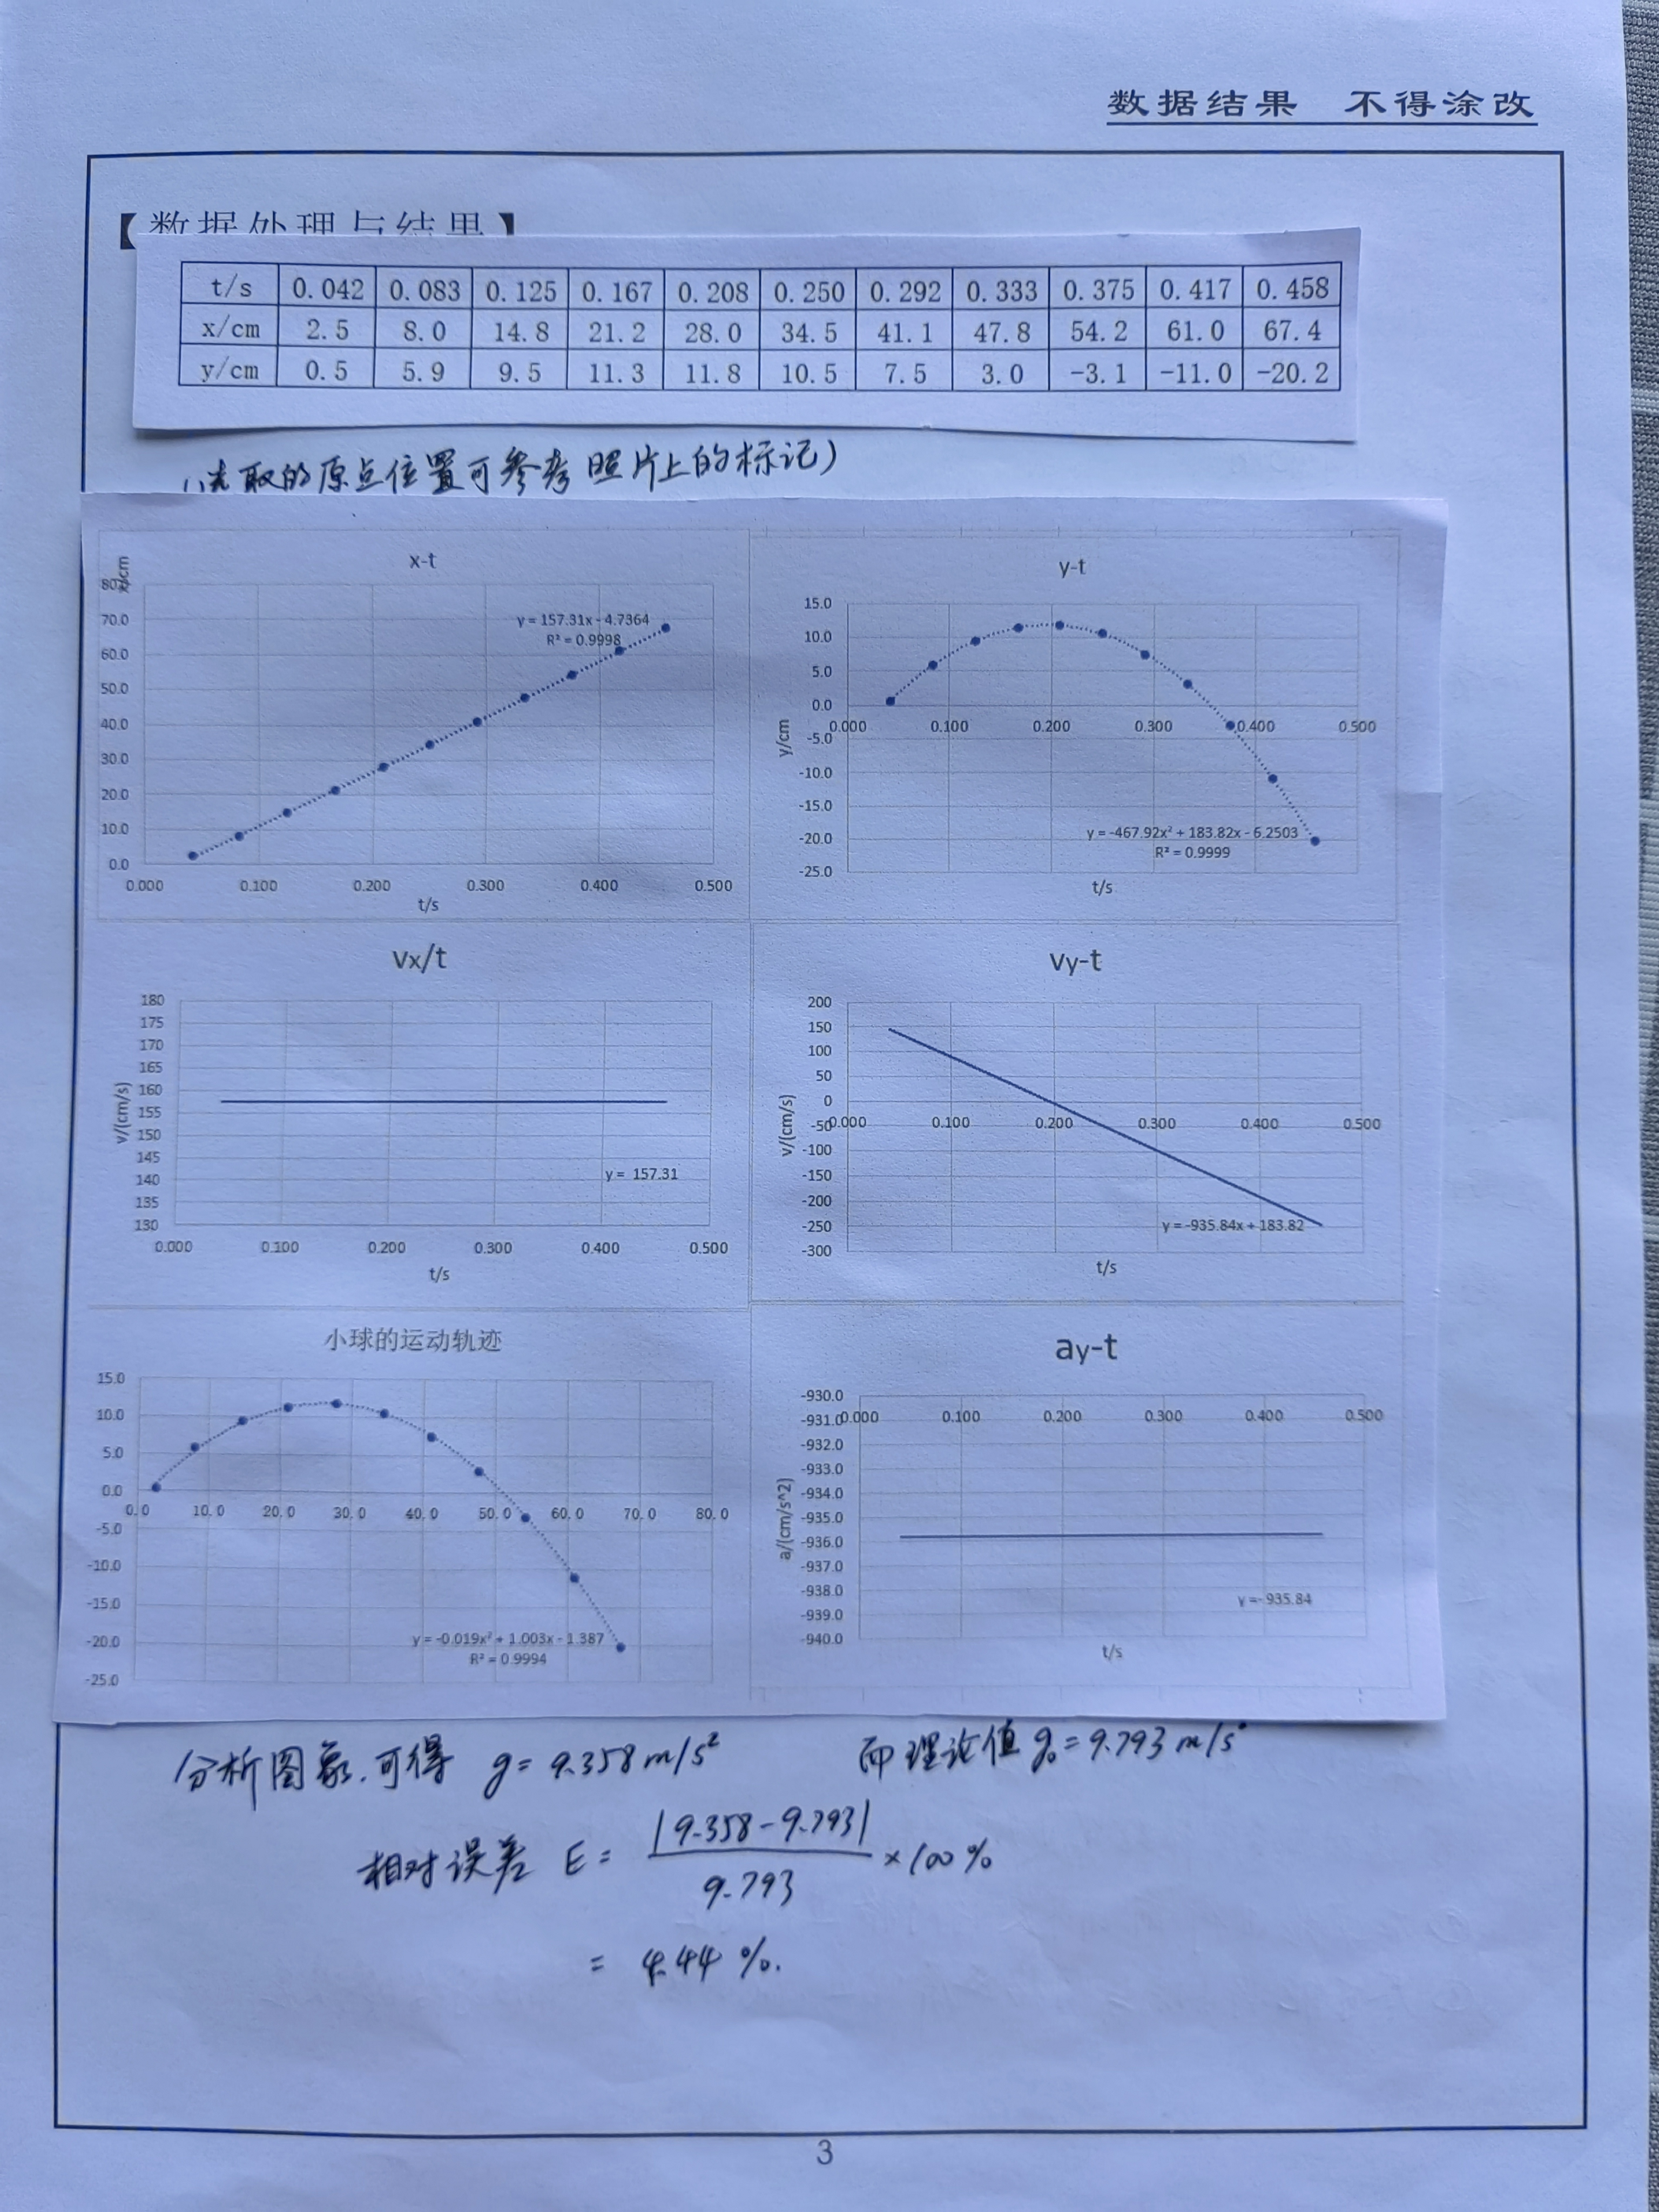 数据结果 不得涂改
【数据处理与结果】
t/s 0.042 0.083 0.125 0.167 0.208 0.250 0.292 0.333 0.375 0.417 0.458
x/cm 2.5 8.0 14.8 21.2 28.0 34.5 41.1 47.8 54.2 61.0 67.4
y/cm 0.5 5.9 9.5 11.3 11.8 10.5 7.5 3.0 -3.1 -11.0 -20.2
(选取的原点位置可参考照片上的标记)
x-t
x/cm
80.0
70.0
60.0
50.0
40.0
30.0
20.0
10.0
0.0
y = 157.31x - 4.7364
R² = 0.9998
0.000 0.100 0.200 0.300 0.400 0.500
t/s
y-t
y/cm
15.0
10.0
5.0
0.0
-5.0
-10.0
-15.0
-20.0
-25.0
0.000 0.100 0.200 0.300 0.400 0.500
y = -467.92x² + 183.82x - 6.2503
R² = 0.9999
t/s
vx/t
v/(cm/s)
180
175
170
165
160
155
150
145
140
135
130
y = 157.31
0.000 0.100 0.200 0.300 0.400 0.500
t/s
vy-t
v/(cm/s)
200
150
100
50
0
-50
-100
-150
-200
-250
-300
0.000 0.100 0.200 0.300 0.400 0.500
y = -935.84x + 183.82
t/s
小球的运动轨迹
15.0
10.0
5.0
0.0
-5.0
-10.0
-15.0
-20.0
-25.0
0.0 10.0 20.0 30.0 40.0 50.0 60.0 70.0 80.0
y = -0.019x² + 1.003x - 1.387
R² = 0.9994
ay-t
a/(cm/s^2)
-930.0
-931.0
-932.0
-933.0
-934.0
-935.0
-936.0
-937.0
-938.0
-939.0
-940.0
0.000 0.100 0.200 0.300 0.400 0.500
y = -935.84
t/s
分析图象,可得 g = 9.358 m/s² 而理论值 g₀ = 9.793 m/s²
相对误差 E = |9.358 - 9.793| / 9.793 × 100 %
= 4.44 %.
3